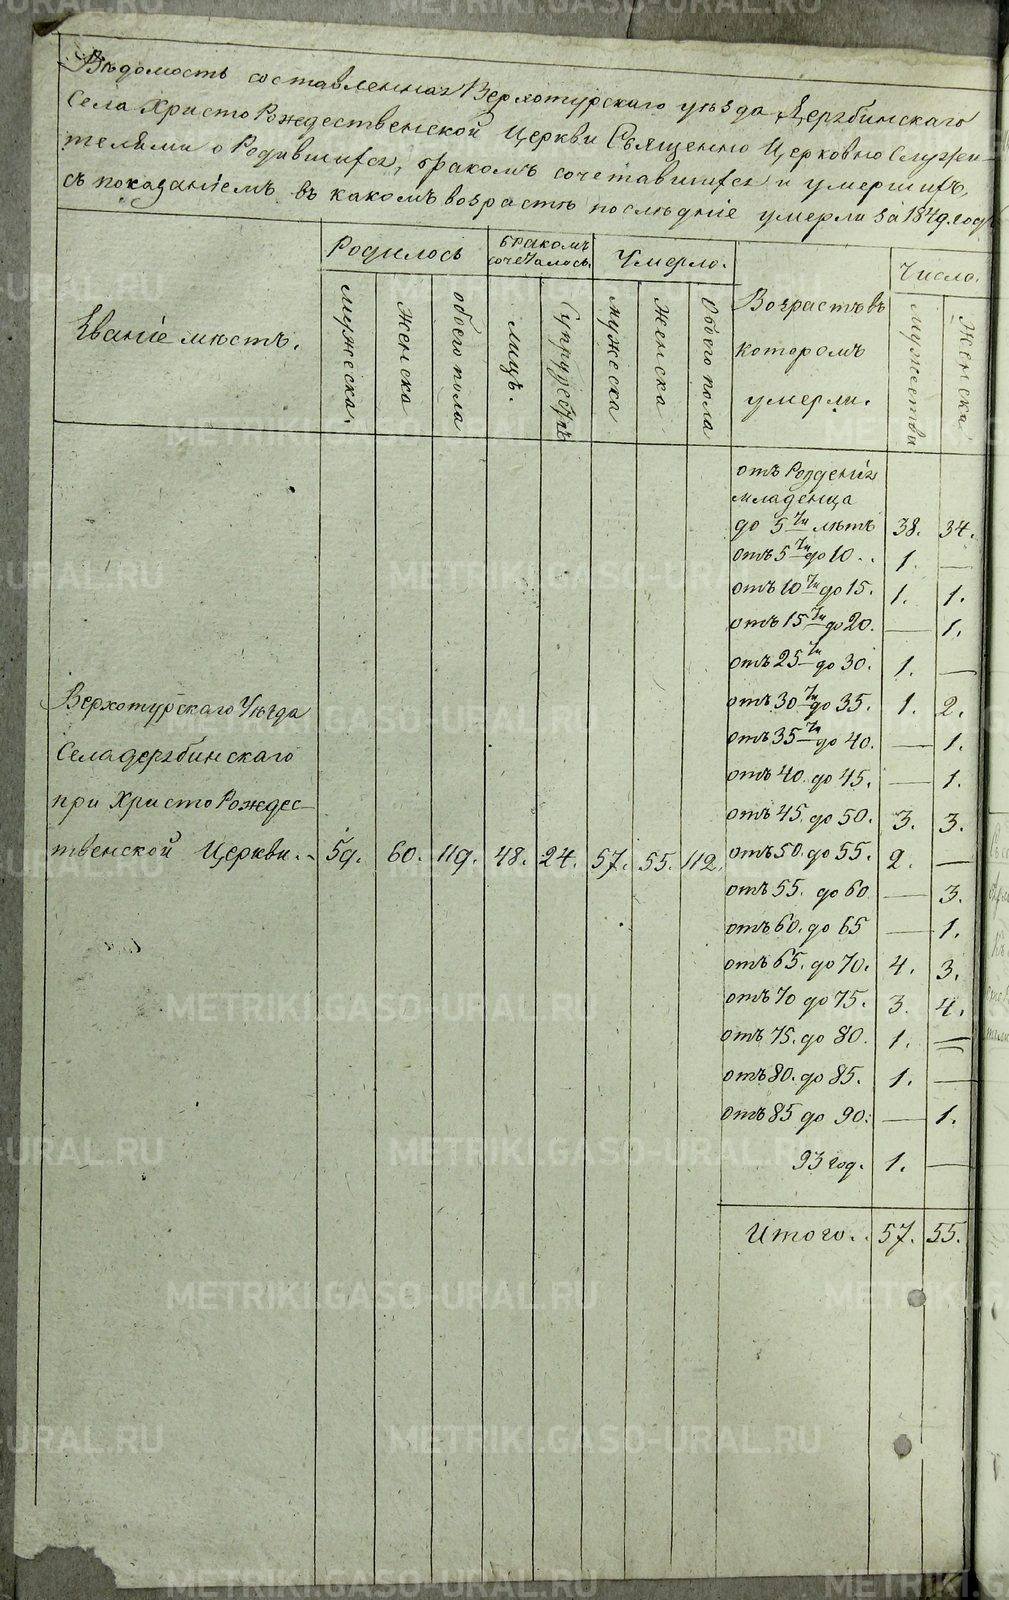 Вѣдомость составленная Верхотурскаго уѣзда Дерябинскаго
Села Христо Рождественской Церкви Священно Церковно Служи-
телями о Родившихся, бракомъ сочетавшихся и умершихъ,
съ показаніемъ въ какомъ возрастѣ послѣдніе умерли за 1849. годъ
Званіе мѣстъ.
Родилось
бракомъ сочеталось.
Умерло.
Возрастъ въ
котором
умерли.
Число.
мужеска.
женска
обоего пола
лицъ.
Супружествъ
мужеска
женска
Обоего пола
мужества
Женска
отъ Рожденія
младенца
до 5ти лѣтъ 38. 34.
отъ 5ти до 10. . 1. —
отъ 10ти до 15. 1. 1.
отъ 15ти до 20. — 1.
отъ 25ти до 30. 1. —
отъ 30ти до 35. 1. 2.
отъ 35ти до 40. — 1.
отъ 40. до 45. — 1.
отъ 45. до 50. 3. 3.
отъ 50. до 55. 2. —
отъ 55. до 60 — 3.
отъ 60. до 65 — 1.
отъ 65. до 70. 4. 3.
отъ 70 до 75. 3. 4.
отъ 75. до 80. 1. —
отъ 80. до 85. 1. —
отъ 85 до 90. — 1.
93 год. 1. —
Итого. . 57. 55.
Верхотурскаго Уѣзда
Села дерябинскаго
при Христо Рождес-
твенской Церкви. - 59. 60. 119. 48. 24. 57. 55. 112.
METRIKI.GASO-URAL.RU